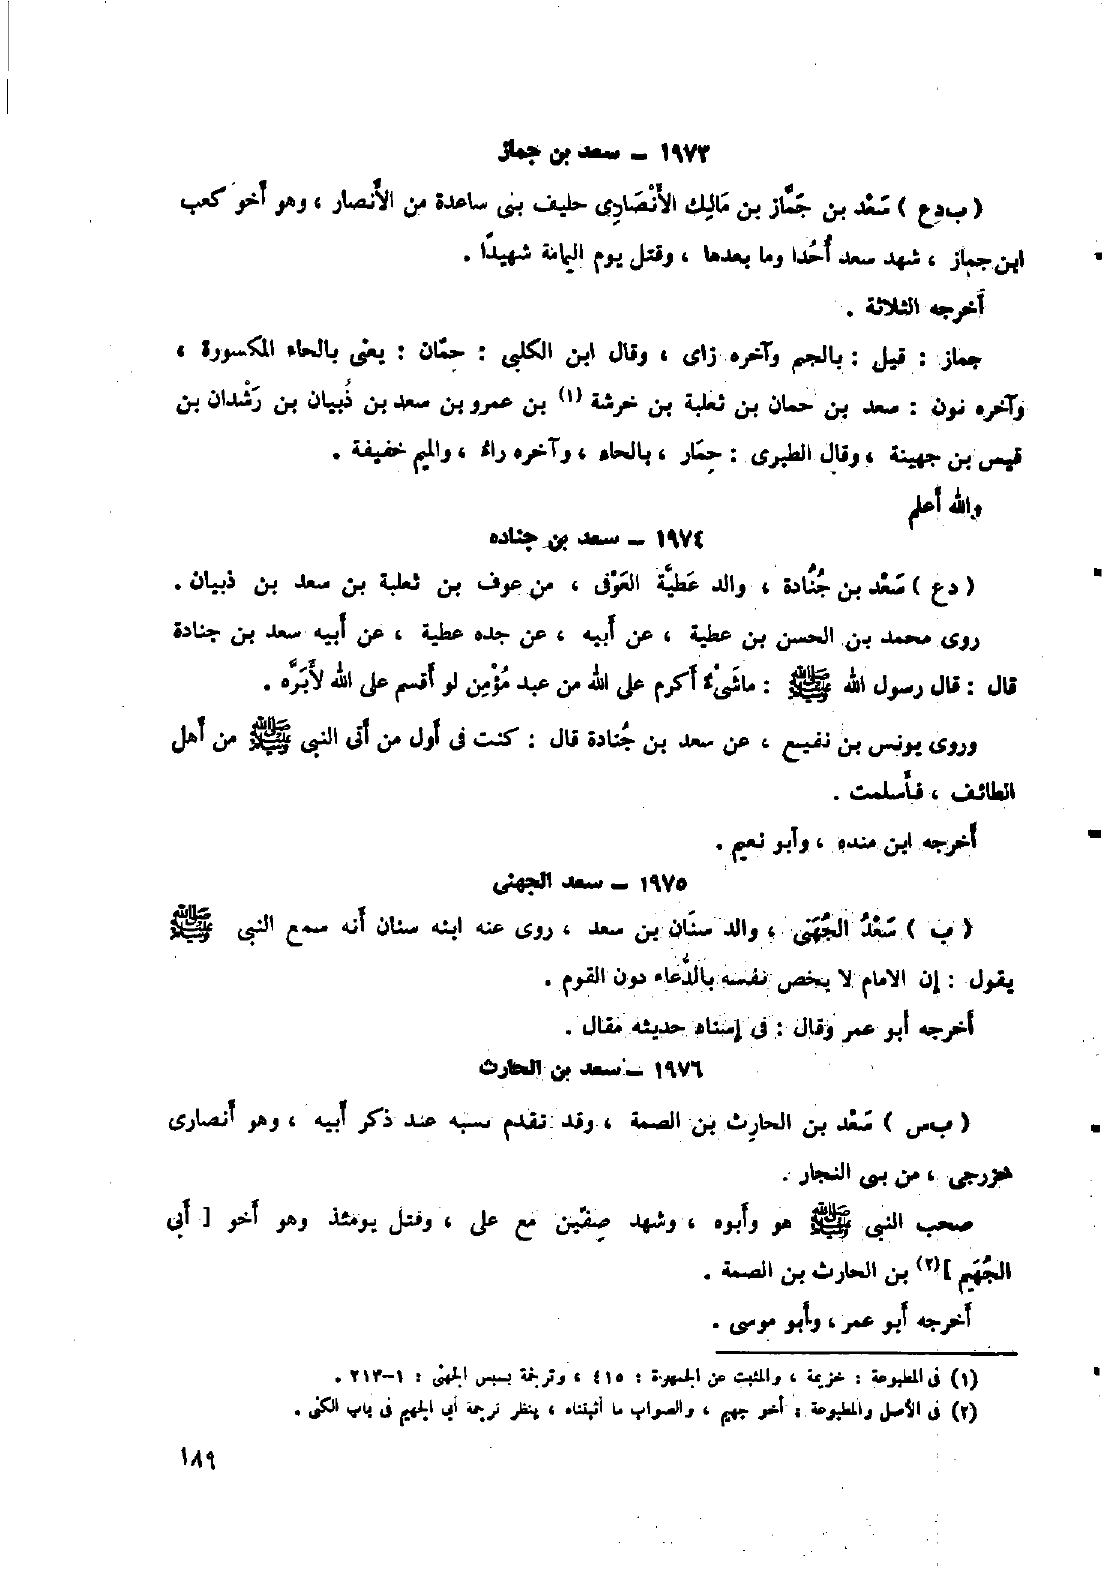 ١٩٧٣ – سعد بن جماز
( ب د ع ) سَعْد بن جَمَّاز بن مَالِك الأَنْصَارِى حليف بنى ساعدة من الأَنصار ، وهو أَخو كعب
ابن جماز ، شهد سعد أُحُدا وما بعدها ، وقتل يوم اليمامة شهيدًا .
أَخرجه الثلاثة .
جماز : قيل : بالجيم وآخره زاى ، وقال ابن الكلبى : حِمّان : يعنى بالحاء المكسورة ،
وآخره نون : سعد بن حمان بن ثعلبة بن خرشة (١) بن عمرو بن سعد بن ذُبيان بن رَشْدان بن
قيس بن جهينة ، وقال الطبرى : حِمَار ، بالحاء ، وآخره راءُ ، والميم خفيفة .
والله أَعلم
١٩٧٤ – سعد بن جناده
( د ع ) سَعْد بن جُنُادة ، والد عَطيَّة العَوْفى ، من عوف بن ثعلبة بن سعد بن ذبيان .
روى محمد بن الحسن بن عطية ، عن أَبيه ، عن جده عطية ، عن أَبيه سعد بن جنادة
قال : قال رسول الله ﷺ : ماشَىْءٌ أَكرم على الله من عبد مُؤْمِن لو أَقسم على الله لأَبَرَّه .
وروى يونس بن نفيع ، عن سعد بن جُنادة قال : كنت فى أَول من أَتى النبى ﷺ من أَهل
الطائف ، فأَسلمت .
أَخرجه ابن منده ، وأَبو نعيم .
١٩٧٥ – سعد الجهنى
( ب ) سَعْدُ الجُهَنى ، والد سنَان بن سعد ، روى عنه ابنه سنان أَنه سمع النبى ﷺ
يقول : إن الامام لا يخص نفسه بالدُّعاء دون القوم .
أَخرجه أَبو عمر وقال : فى إسناد حديثه مقال .
١٩٧٦ – سعد بن الحارث
( ب س ) سَعْد بن الحارِث بن الصمة ، وقد تقدم نسبه عند ذكر أَبيه ، وهو أَنصارى
خزرجى ، من بنى النجار .
صحب النبى ﷺ هو وأَبوه ، وشهد صِفّين مع على ، وقتل يومئذ وهو أَخو [ أَبي
الجُهَيم ](٢) بن الحارث بن الصمة .
أَخرجه أَبو عمر ، وأَبو موسى .
(١) فى المطبوعة : خزيمة ، والمثبت عن الجمهرة : ٤١٥ ، وترجمة بسبس الجهنى : ١–٢١٣ .
(٢) فى الأصل والمطبوعة : أخو جهيم ، والصواب ما أثبتناه ، ينظر ترجمة أبي الجهيم فى باب الكنى .
١٨٩